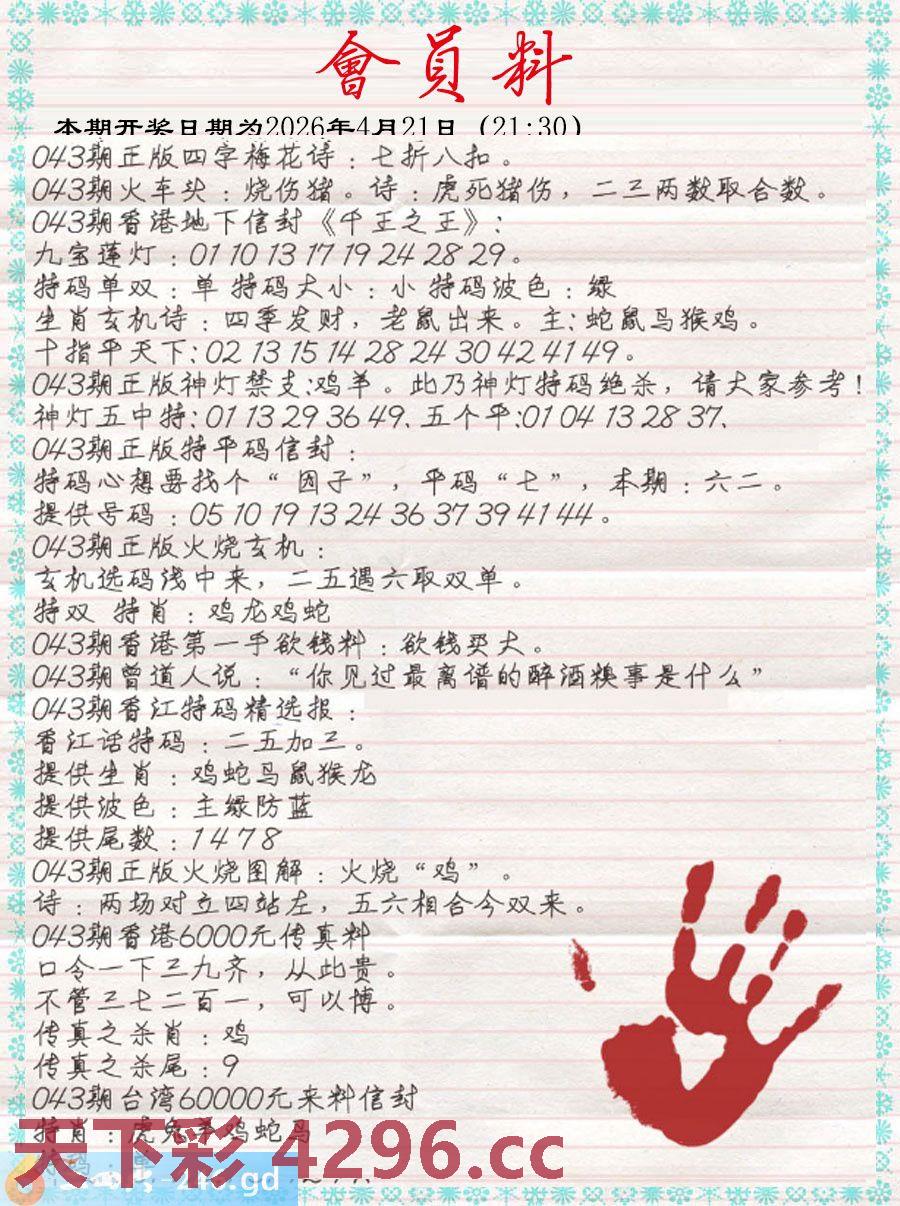 會員料
本期开奖日期为2026年4月21日（21:30）
043期正版四字梅花诗：七折八扣。
043期火车头：烧伤猪。诗：虎死猪伤，二三两数取合数。
043期香港地下信封《千王之王》：
九宝莲灯：01 10 13 17 19 24 28 29。
特码单双：单 特码大小：小 特码波色：绿
生肖玄机诗：四季发财，老鼠出来。主：蛇鼠马猴鸡。
十指平天下：02 13 15 14 28 24 30 42 41 49。
043期正版神灯禁支：鸡羊。此乃神灯特码绝杀，请大家参考！
神灯五中特：01 13 29 36 49、五个平：01 04 13 28 37、
043期正版特平码信封：
特码心想要找个“因子”，平码“七”，本期：六二。
提供号码：05 10 19 13 24 36 37 39 41 44。
043期正版火烧玄机：
玄机选码浅中来，二五遇六取双单。
特双 特肖：鸡龙鸡蛇
043期香港第一手欲钱料：欲钱买犬。
043期曾道人说：“你见过最离谱的醉酒糗事是什么”
043期香江特码精选报：
香江话特码：二五加三。
提供生肖：鸡蛇马鼠猴龙
提供波色：主绿防蓝
提供尾数：1 4 7 8
043期正版火烧图解：火烧“鸡”。
诗：两场对立四站左，五六相合今双来。
043期香港6000元传真料
口令一下三九齐，从此贵。
不管三七二百一，可以博。
传真之杀肖：鸡
传真之杀尾：9
043期台湾60000元来料信封
特肖：虎兔羊鸡蛇马
天下彩 4296.cc